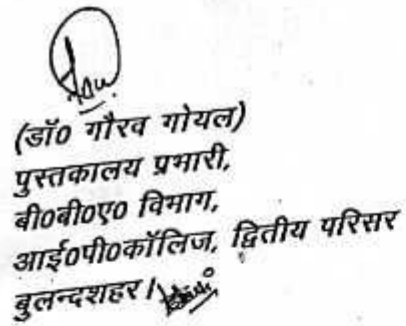 (डॉ० गौरव गोयल)
पुस्तकालय प्रभारी,
बी०बी०ए० विभाग,
आई०पी०कॉलिज, द्वितीय परिसर
बुलन्दशहर।